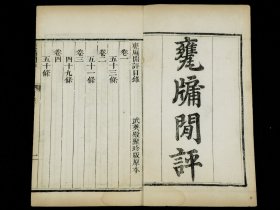 甕牖閒評
甕牖閒評目錄
卷一
五十三條
卷二
五十一條
卷三
四十九條
卷四
五十條
武英殿聚珍版原本